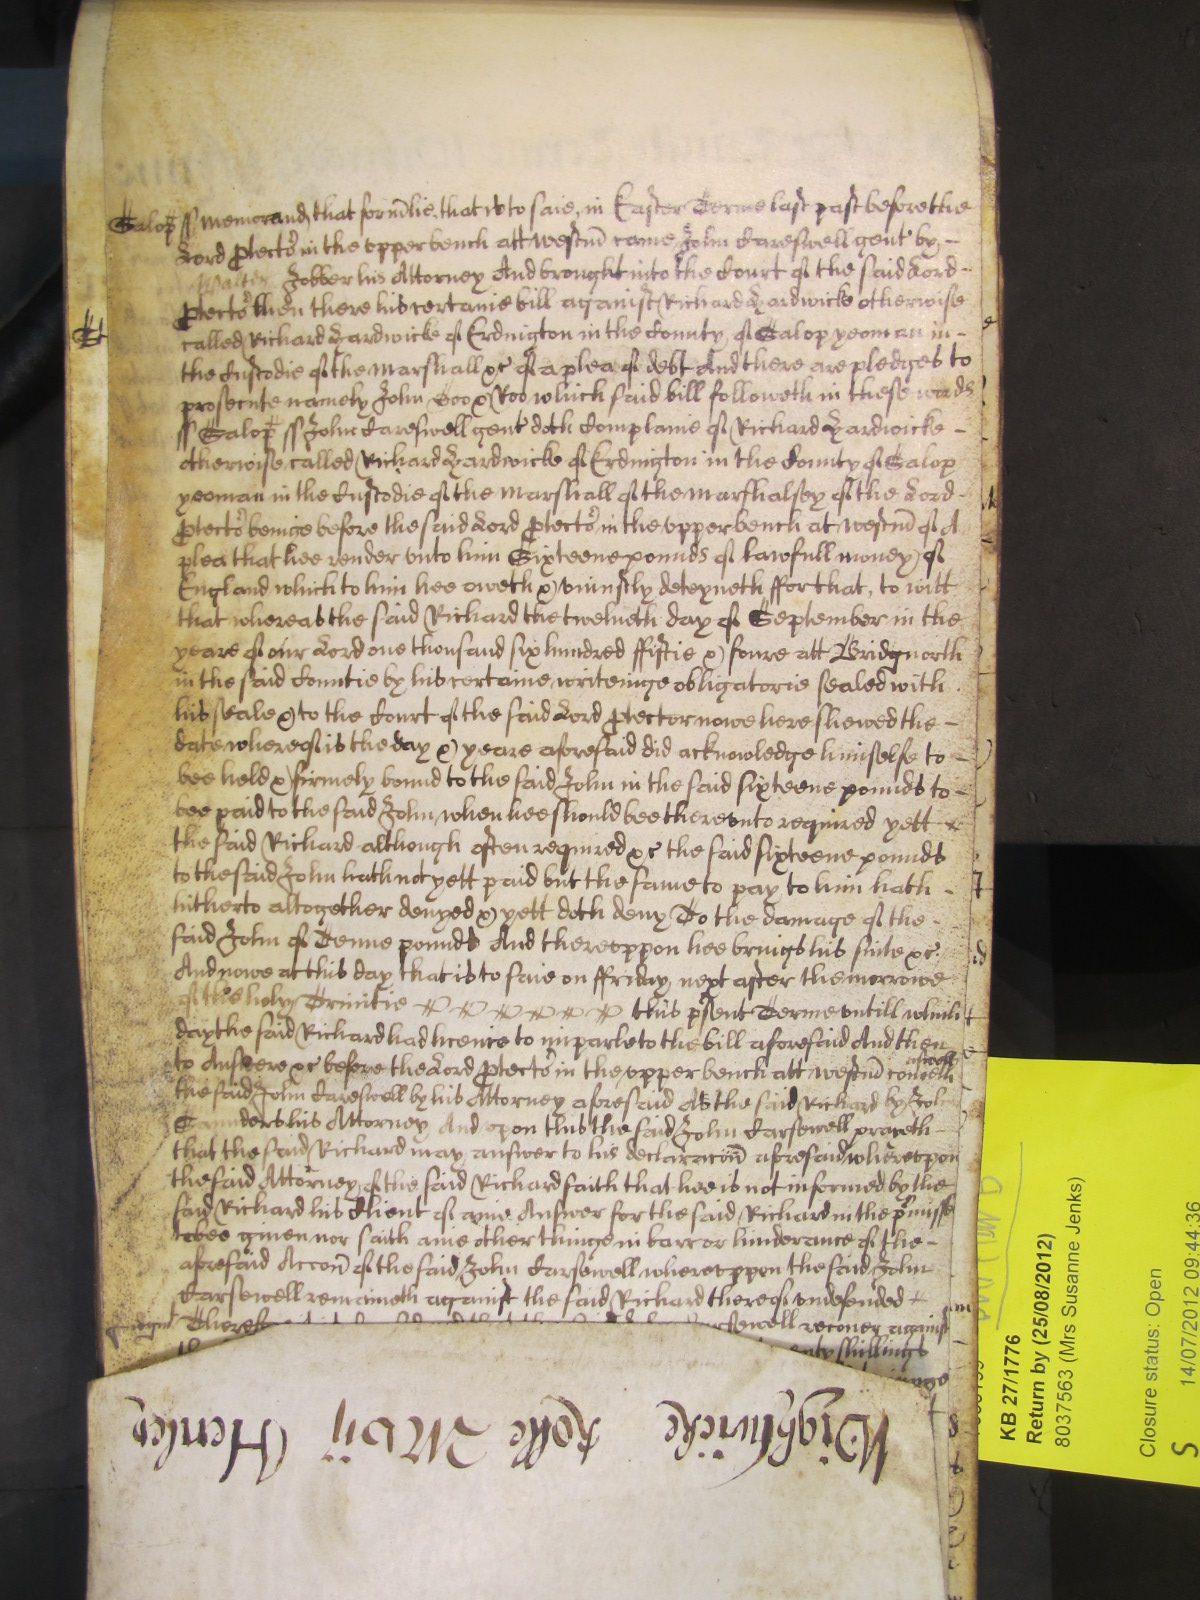 Salop ss Memorand that formlie, that is to saie, in Easter Terme last past before the
Lord Ptector in the upper bench att Westm came John Careswell gent by
Walter Jobber his Attorney And brought into the Court of the said Lord
Ptector then there his certaine bill against Richard Hardwicke otherwise
called Richard Hardwicke of Erdington in the County of Salop yeoman in
the Custodie of the Marshall &c of a plea of debt And there are pledges to
prosecute namely John Doo & Roo which said bill followeth in these words
ss Salop ss John Careswell gent doth Complaine of Richard Hardwicke
otherwise called Richard Hardwicke of Erdington in the County of Salop
yeoman in the Custodie of the Marshall of the Marshalsey of the Lord
Ptector beinge before the said Lord Ptector in the upper bench at Westm of A
plea that hee render unto him Sixteene pounds of lawfull money of
England which to him hee oweth & uniustly deteyneth ffor that, to witt
that whereas the said Richard the twelueth day of September in the
yeare of our Lord one thousand six hundred ffiftie & foure att Bridgnorth
in the said Countie by his certaine writeinge obligatorie sealed with
his seale & to the Court of the said Lord Ptector nowe here shewed the
date whereof is the day & yeare aforesaid did acknowledge himselfe to
bee held & firmely bound to the said John in the said sixteene pounds to
bee paid to the said John when hee should bee thereunto required yett
the said Richard although often required &c the said sixteene pounds
to the said John hath not yett paid but the same to pay to him hath
hitherto altogether denyed & yett doth deny To the damage of the
said John of Tenne pounds And thereuppon hee brings his suite &c
And nowe at this day that is to saie on ffriday next after the morrowe
of the holy Trinitie this psent Terme untill which
day the said Richard had licence to imparle to the bill aforesaid And then
to Answere &c before the Lord Ptector in the upper bench att Westm cometh aswell
the said John Careswell by his Attorney aforesaid As the said Richard by John
Saunders his Attorney And upon this the said John Carsewell prayeth
that the said Richard may answer to his declaracon aforesaid whereupon
the said Attorney of the said Richard saith that hee is not informed by the
said Richard his Client of anie Answer for the said Richard in the pmisses
to bee giuen nor saith anie other thinge in barr or hinderance of the
aforesaid Accon of the said John Carsewell whereuppon the said John
Carsewell remaineth against the said Richard thereof undefended
Judgmt Therefore Carsewell recouer against
shillings
Wightwicke Rolle Henley
KB 27/1776
Return by (25/08/2012)
8037563 (Mrs Susanne Jenks)
Closure status: Open
S 14/07/2012 09:44:36